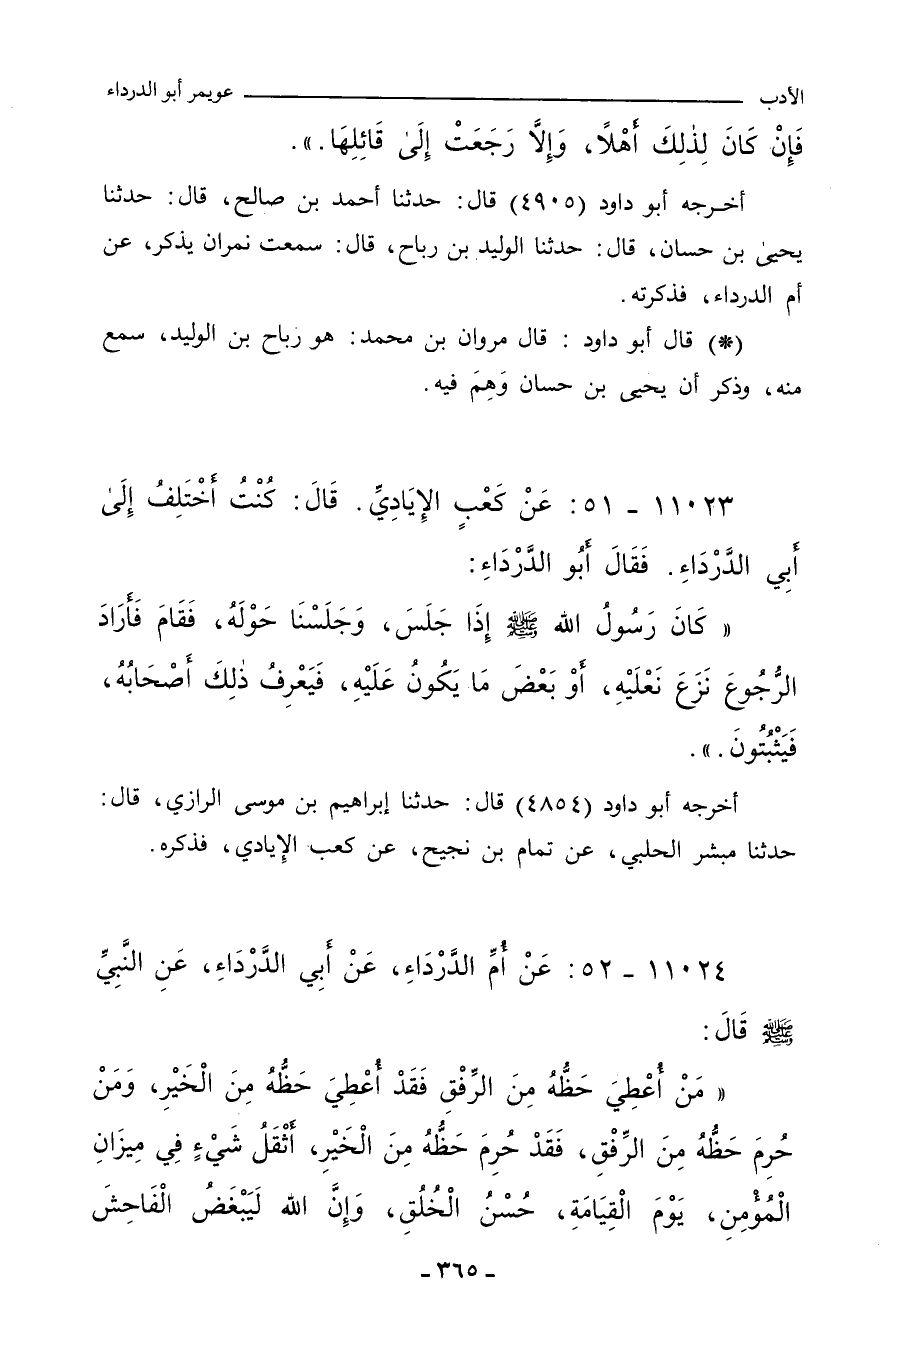 الأدب ـــــــــــــــــ عويمر أبو الدرداء
فَإِنْ كَانَ لِذٰلِكَ أَهْلاً، وَإِلَّا رَجَعَتْ إِلَىٰ قَائِلِهَا.».
أخـرجه أبو داود (٤٩٠٥) قال: حدثنا أحمد بن صالح، قال: حدثنا
يحيىٰ بن حسان، قال: حدثنا الوليد بن رباح، قال: سمعت نمران يذكر، عن
أم الدرداء، فذكرته.
(*) قال أبو داود : قال مروان بن محمد: هو رباح بن الوليد، سمع
منه، وذكر أن يحيى بن حسان وَهِمَ فيه.
١١٠٢٣ ـ ٥١: عَنْ كَعْبٍ الإِيَادِيِّ. قَالَ: كُنْتُ أَخْتَلِفُ إِلَىٰ
أَبِي الدَّرْدَاءِ. فَقَالَ أَبُو الدَّرْدَاءِ:
« كَانَ رَسُولُ الله ﷺ إِذَا جَلَسَ، وَجَلَسْنَا حَوْلَهُ، فَقَامَ فَأَرَادَ
الرُّجُوعَ نَزَعَ نَعْلَيْهِ، أَوْ بَعْضَ مَا يَكُونُ عَلَيْهِ، فَيَعْرِفُ ذٰلِكَ أَصْحَابُهُ،
فَيَثْبُتُونَ.».
أخرجه أبو داود (٤٨٥٤) قال: حدثنا إبراهيم بن موسى الرازي، قال:
حدثنا مبشر الحلبي، عن تمام بن نجيح، عن كعب الإيادي، فذكره.
١١٠٢٤ ـ ٥٢: عَنْ أُمِّ الدَّرْدَاءِ، عَنْ أَبِي الدَّرْدَاءِ، عَنِ النَّبِيِّ
ﷺ قَالَ:
« مَنْ أُعْطِيَ حَظُّهُ مِنَ الرِّفْقِ فَقَدْ أُعْطِيَ حَظُّهُ مِنَ الْخَيْرِ، وَمَنْ
حُرِمَ حَظُّهُ مِنَ الرِّفْقِ، فَقَدْ حُرِمَ حَظُّهُ مِنَ الْخَيْرِ، أَثْقَلُ شَيْءٍ فِي مِيزَانِ
الْمُؤْمِنِ، يَوْمَ الْقِيَامَةِ، حُسْنُ الْخُلُقِ، وَإِنَّ الله لَيَبْغَضُ الْفَاحِشَ
ـ ٣٦٥ ـ